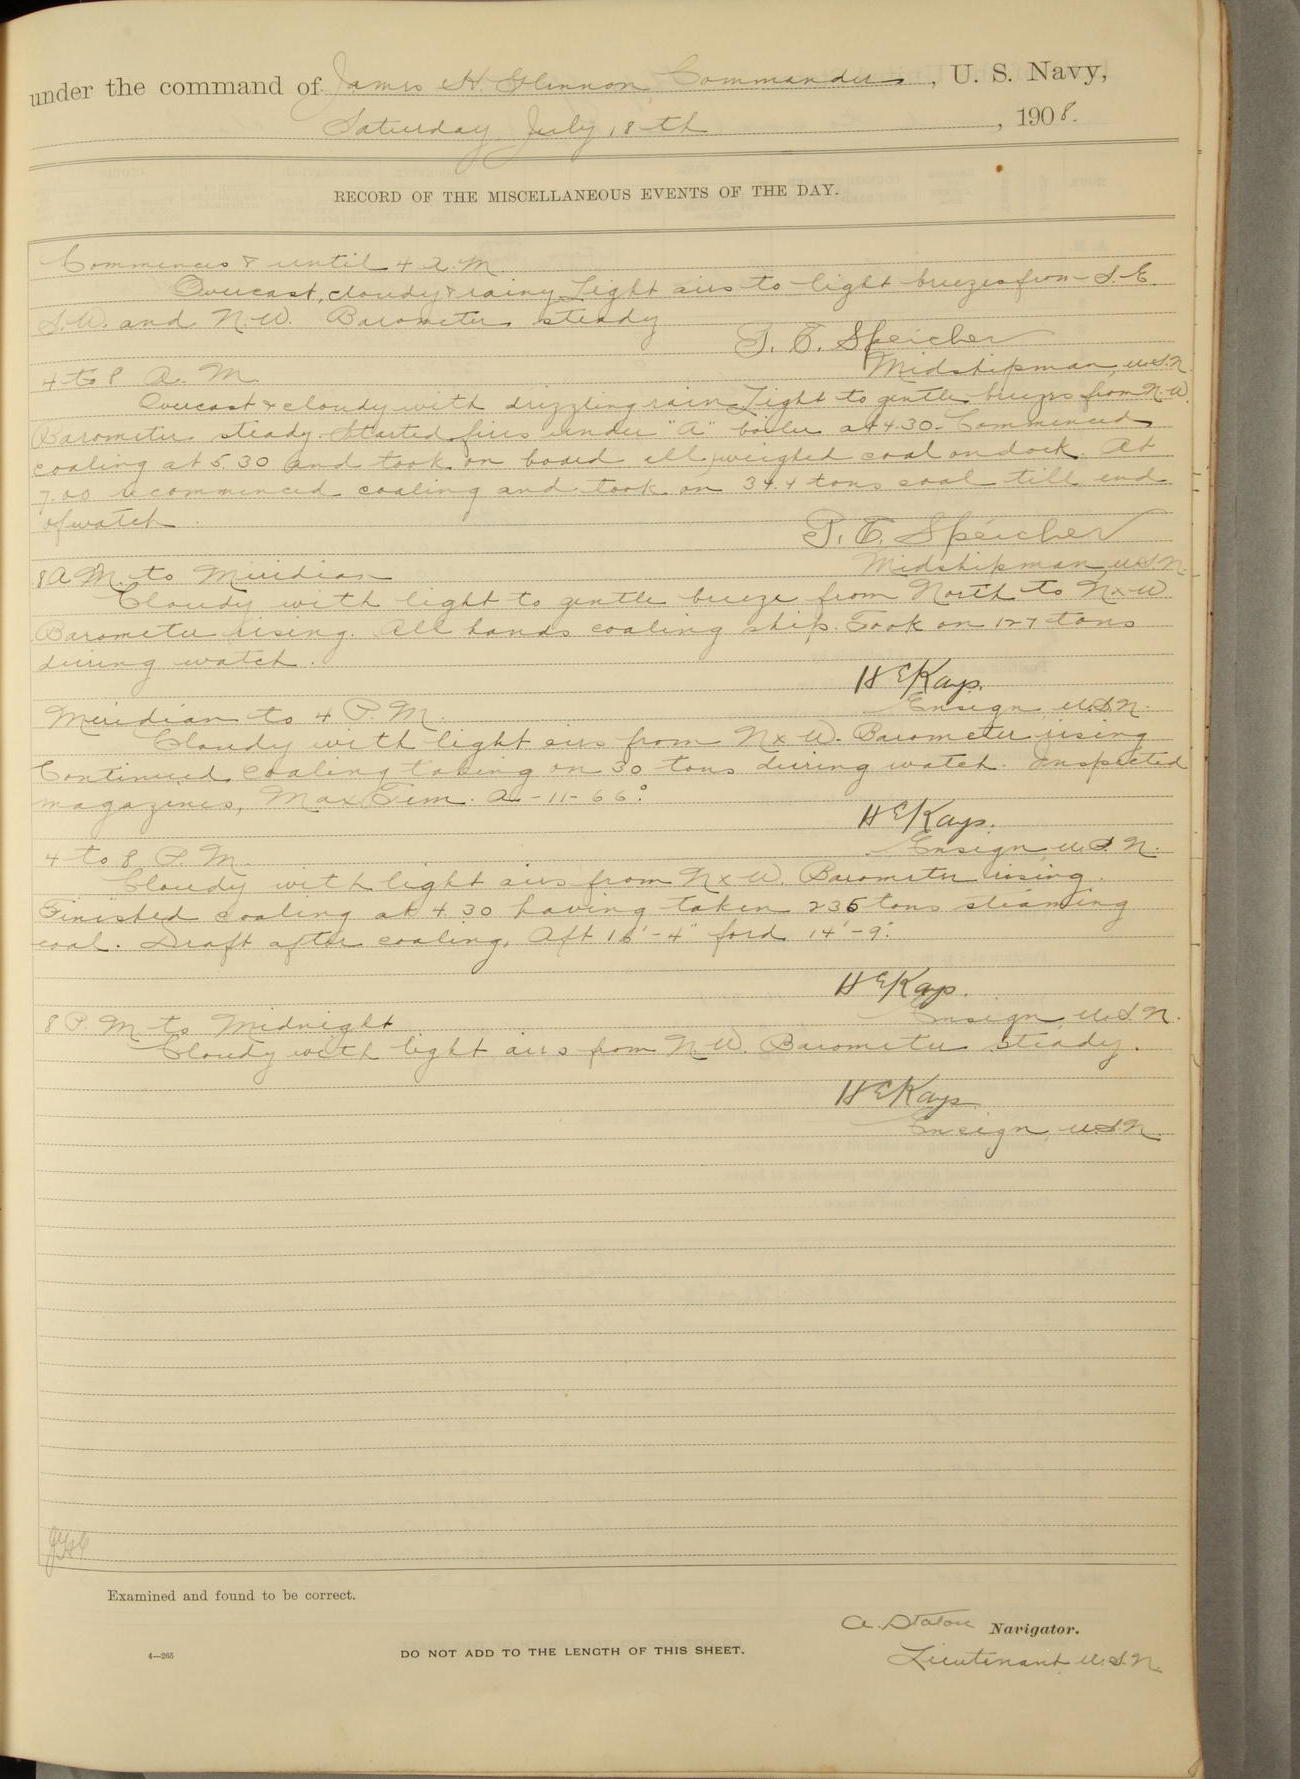 under the command of James H. Glennon, Commander, U. S. Navy,
Saturday July 18th, 1908.
RECORD OF THE MISCELLANEOUS EVENTS OF THE DAY.
Commences & until 4 A.M.
Overcast, cloudy & rainy. Light airs to light breezes from S.E.
S.W. and N.W. Barometer steady
T. E. Speicher
Midshipman, U.S.N.
4 to 8 A. M.
Overcast & cloudy with drizzling rain. Light to gentle breezes from N.W.
Barometer steady. Started fires under "A" boiler at 4.30. Commenced
coaling at 5.30 and took on board all weighed coal on dock. At
7.00 recommenced coaling and took on 34.4 tons coal till end
of watch.
T. E. Speicher
Midshipman U.S.N.
8 A.M. to Meridian
Cloudy with light to gentle breeze from North to N x W
Barometer rising. All hands coaling ship. Took on 127 tons
during watch.
H E Kays.
Ensign, U.S.N.
Meridian to 4 P.M.
Cloudy with light airs from N x W. Barometer rising
Continued coaling taking on 30 tons during watch. Inspected
magazines, Max Tem. A-11-66°.
H E Kays.
Ensign, U.S.N.
4 to 8 P.M.
Cloudy with light airs from N x W. Barometer rising.
Finished coaling at 4.30 having taken 235 tons steaming
coal. Draft after coaling, Aft 16'-4" ford 14'-9".
H E Kays.
Ensign, U.S.N.
8 P.M. to Midnight
Cloudy with light airs from N.W. Barometer steady.
H E Kays
Ensign, U.S.N.
Examined and found to be correct.
A. Staton Navigator.
4—265 DO NOT ADD TO THE LENGTH OF THIS SHEET.
Lieutenant U.S.N.